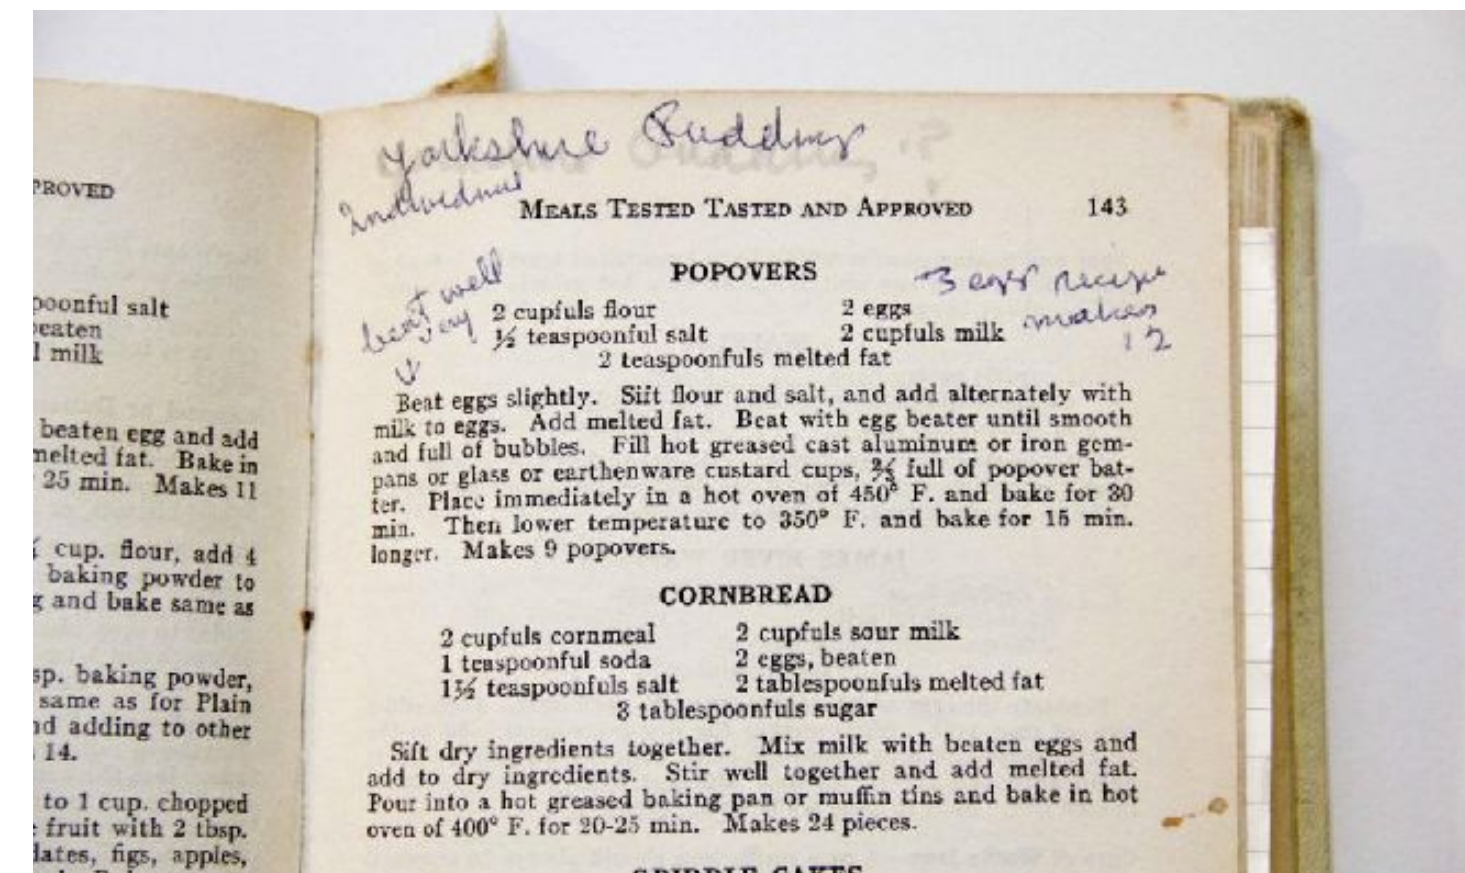 PROVED
poonful salt
beaten
l milk
beaten egg and add
melted fat. Bake in
25 min. Makes 11
cup. flour, add 4
baking powder to
g and bake same as
sp. baking powder,
same as for Plain
nd adding to other
14.
to 1 cup. chopped
fruit with 2 tbsp.
dates, figs, apples,
Yorkshire Pudding
Individual
MEALS TESTED TASTED AND APPROVED 143
POPOVERS
beat well
3 eggs recipe
makes
12
2 cupfuls flour 2 eggs
½ teaspoonful salt 2 cupfuls milk
2 teaspoonfuls melted fat
Beat eggs slightly. Sift flour and salt, and add alternately with
milk to eggs. Add melted fat. Beat with egg beater until smooth
and full of bubbles. Fill hot greased cast aluminum or iron gem-
pans or glass or earthenware custard cups, ⅔ full of popover bat-
ter. Place immediately in a hot oven of 450° F. and bake for 30
min. Then lower temperature to 350° F. and bake for 15 min.
longer. Makes 9 popovers.
CORNBREAD
2 cupfuls cornmeal 2 cupfuls sour milk
1 teaspoonful soda 2 eggs, beaten
1½ teaspoonfuls salt 2 tablespoonfuls melted fat
3 tablespoonfuls sugar
Sift dry ingredients together. Mix milk with beaten eggs and
add to dry ingredients. Stir well together and add melted fat.
Pour into a hot greased baking pan or muffin tins and bake in hot
oven of 400° F. for 20-25 min. Makes 24 pieces.
GRIDDLE CAKES